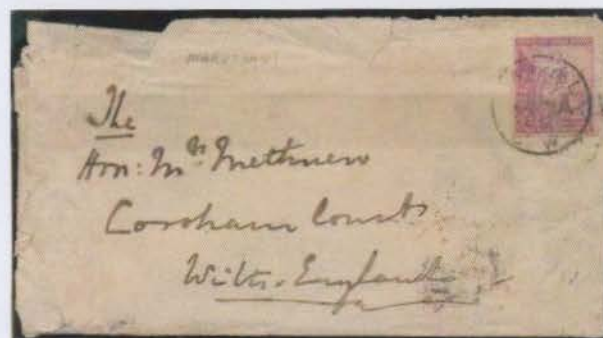 The
Hon: Mrs Methuen
Corsham Court
Wilts. England